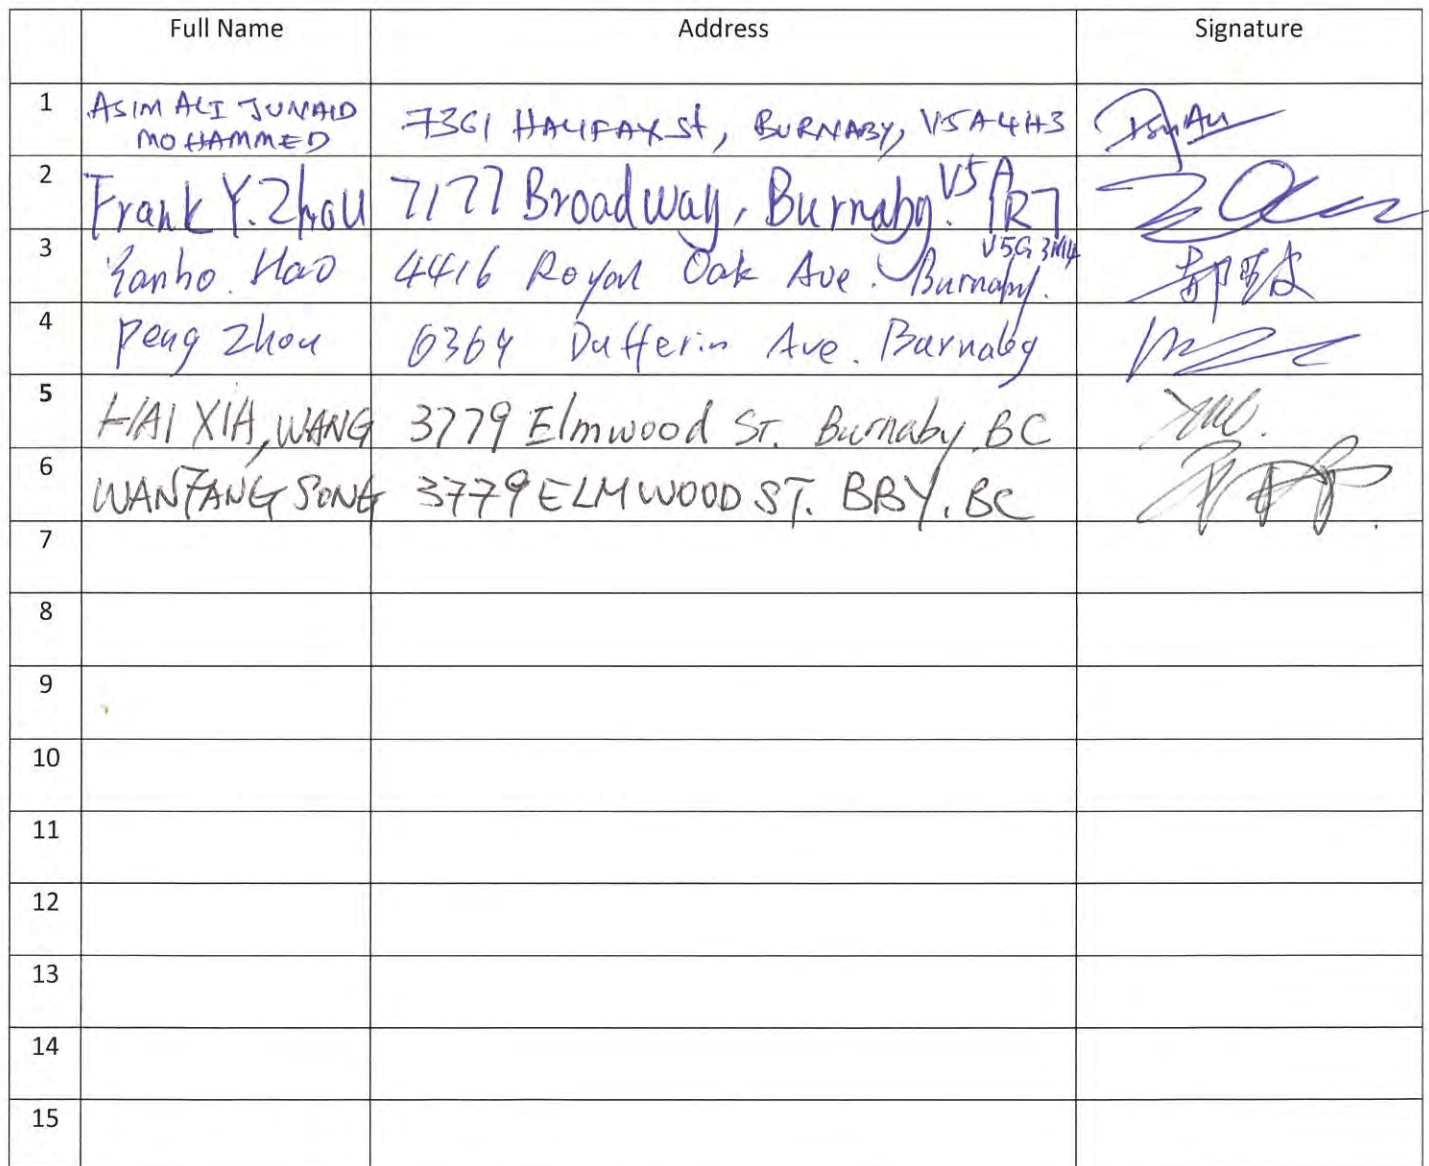 Full Name Address Signature
1 ASIM ALI JUNAID
MOHAMMED 7361 HALIFAX St, BURNABY, V5A4H3
2 Frank Y. Zhou 7177 Broadway, Burnaby. V5A 1R7
3 Yanbo. Hao 4416 Royal Oak Ave. Burnaby. V5G 3M4
4 Peng Zhou 6364 Dufferin Ave. Burnaby
5 HAI XIA, WANG 3779 Elmwood ST. Burnaby BC
6 WANFANG SONG 3779 ELMWOOD ST. BBY. BC
7
8
9
10
11
12
13
14
15